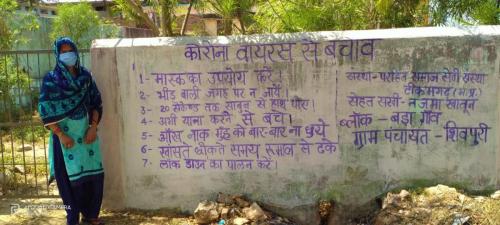 कोराना वायरस से बचाव
1- मास्क का उपयोग करें।
2- भीड़ वाली जगह पर न जायें।
3- 20 सेकेण्ड तक साबुन से हाथ धोए।
4- अभी यात्रा करने से बचें।
5- आँख, नाक, मुँह को बार-बार ना छुये
6- खांसते छींकते समय रूमाल से ढके
7- लॉक डाउन का पालन करें।
संस्था- परहित समाज सेवी संस्था
टीकमगढ़ (म.प्र.)
सेहत सखी- नजमा खातून
ब्लॉक- बड़ा गाँव
ग्राम पंचायत- शिवपुरी